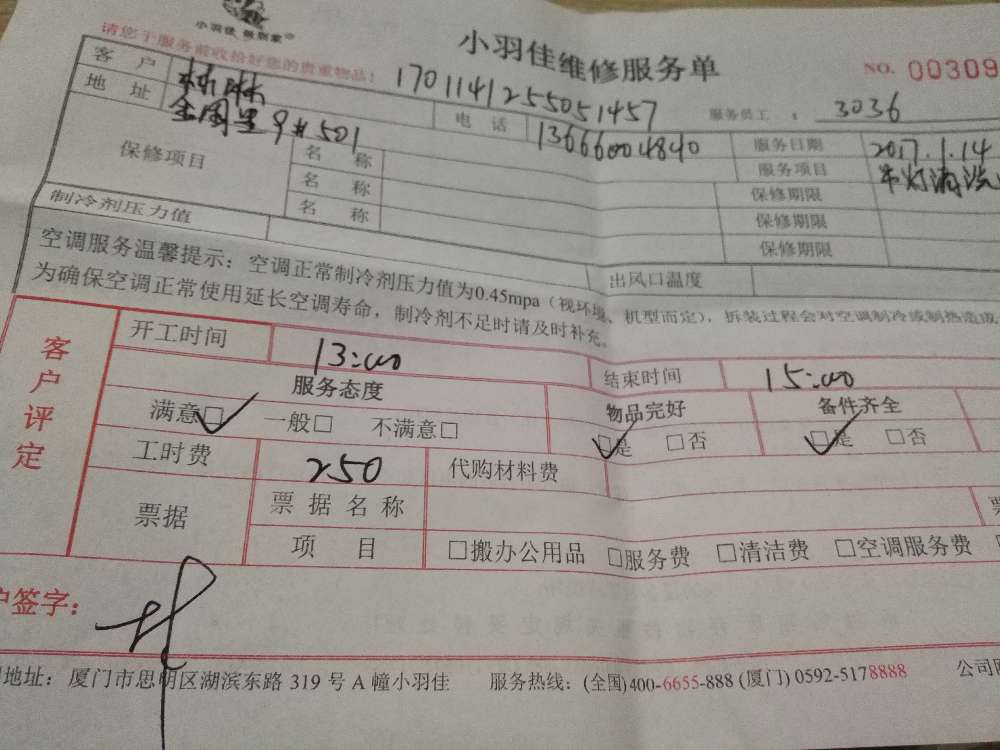 小羽佳 微到家
小羽佳维修服务单
NO. 00309
请您于服务前收拾好您的贵重物品！
1701141255051457
服务员工： 3036
客 户 林琳 电 话 13666004840 服务日期 2017.1.14
地 址 金国里9#501 服务项目 吊灯清洗
保修项目 名 称 保修期限
名 称 保修期限
名 称 保修期限
制冷剂压力值 出风口温度
空调服务温馨提示：空调正常制冷剂压力值为0.45mpa（视环境、机型而定），拆装过程会对空调制冷或制热造成
为确保空调正常使用延长空调寿命，制冷剂不足时请及时补充。
客户评定
开工时间 13:00 结束时间 15:00
服务态度 物品完好 备件齐全
满意□ 一般□ 不满意□ □是 □否 □是 □否
工时费 250 代购材料费
票据 票 据 名 称 票
项 目 □搬办公用品 □服务费 □清洁费 □空调服务费
户签字：
地址：厦门市思明区湖滨东路 319 号 A 幢小羽佳 服务热线：(全国)400-6655-888 (厦门) 0592-5178888 公司